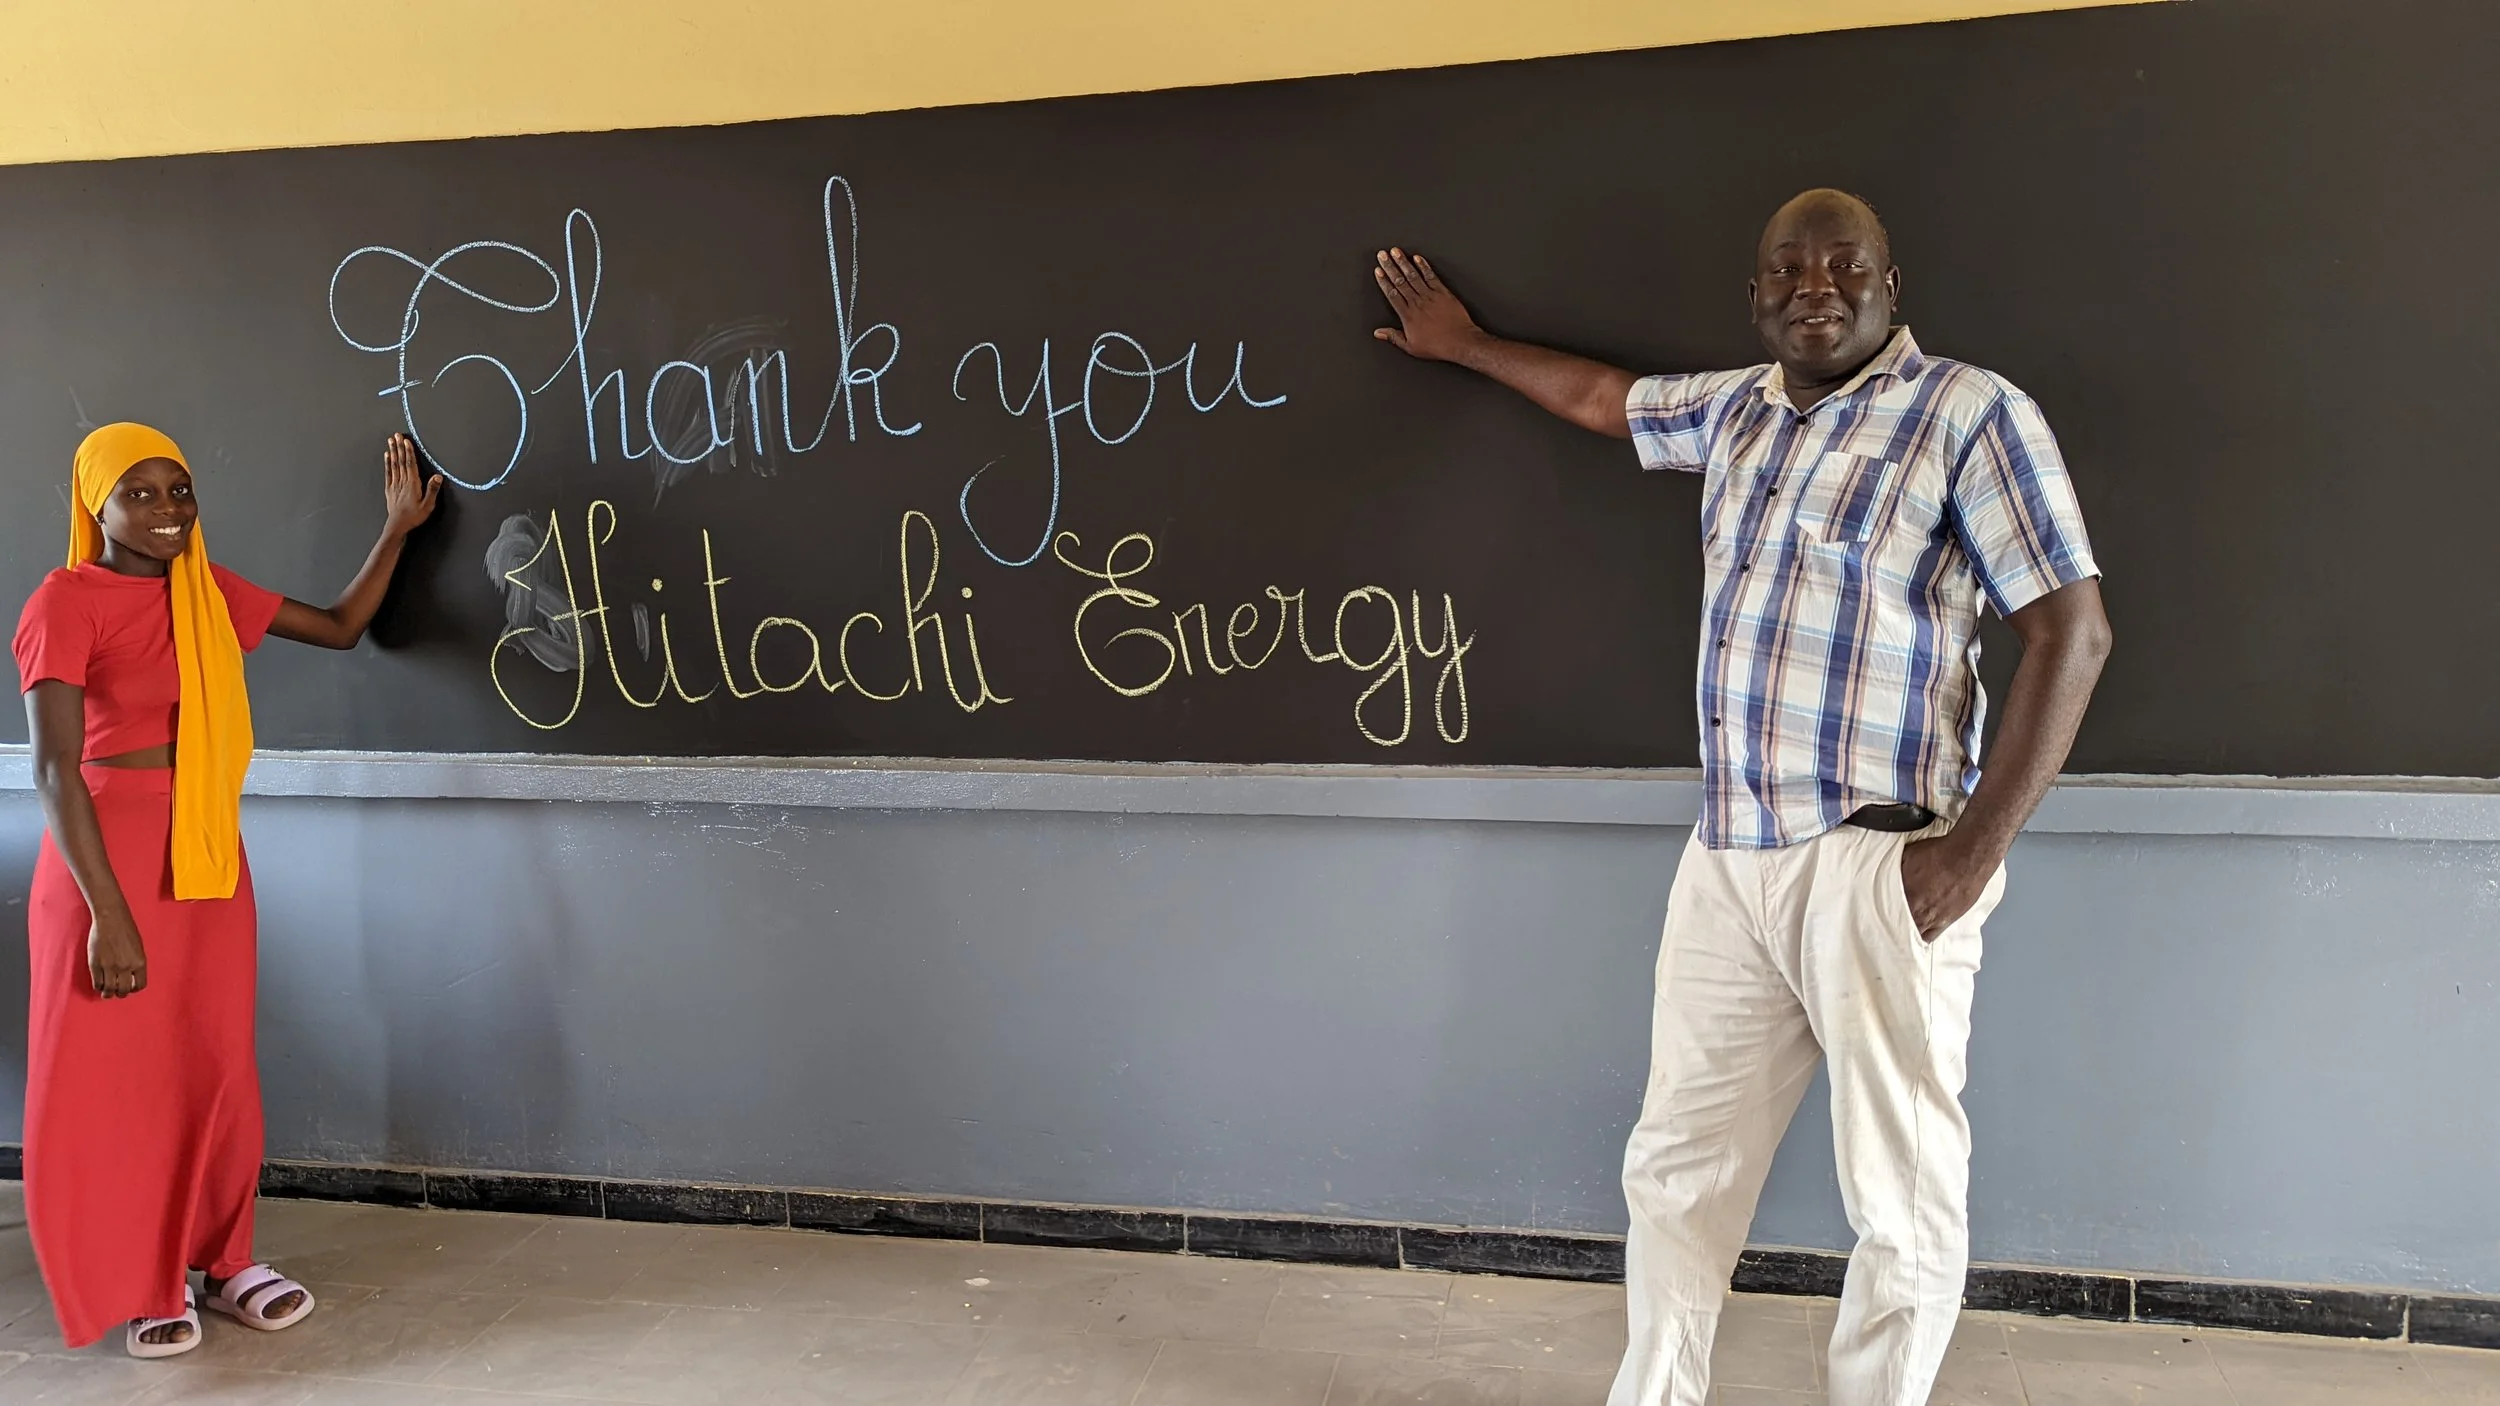 Thank you
Hitachi Energy